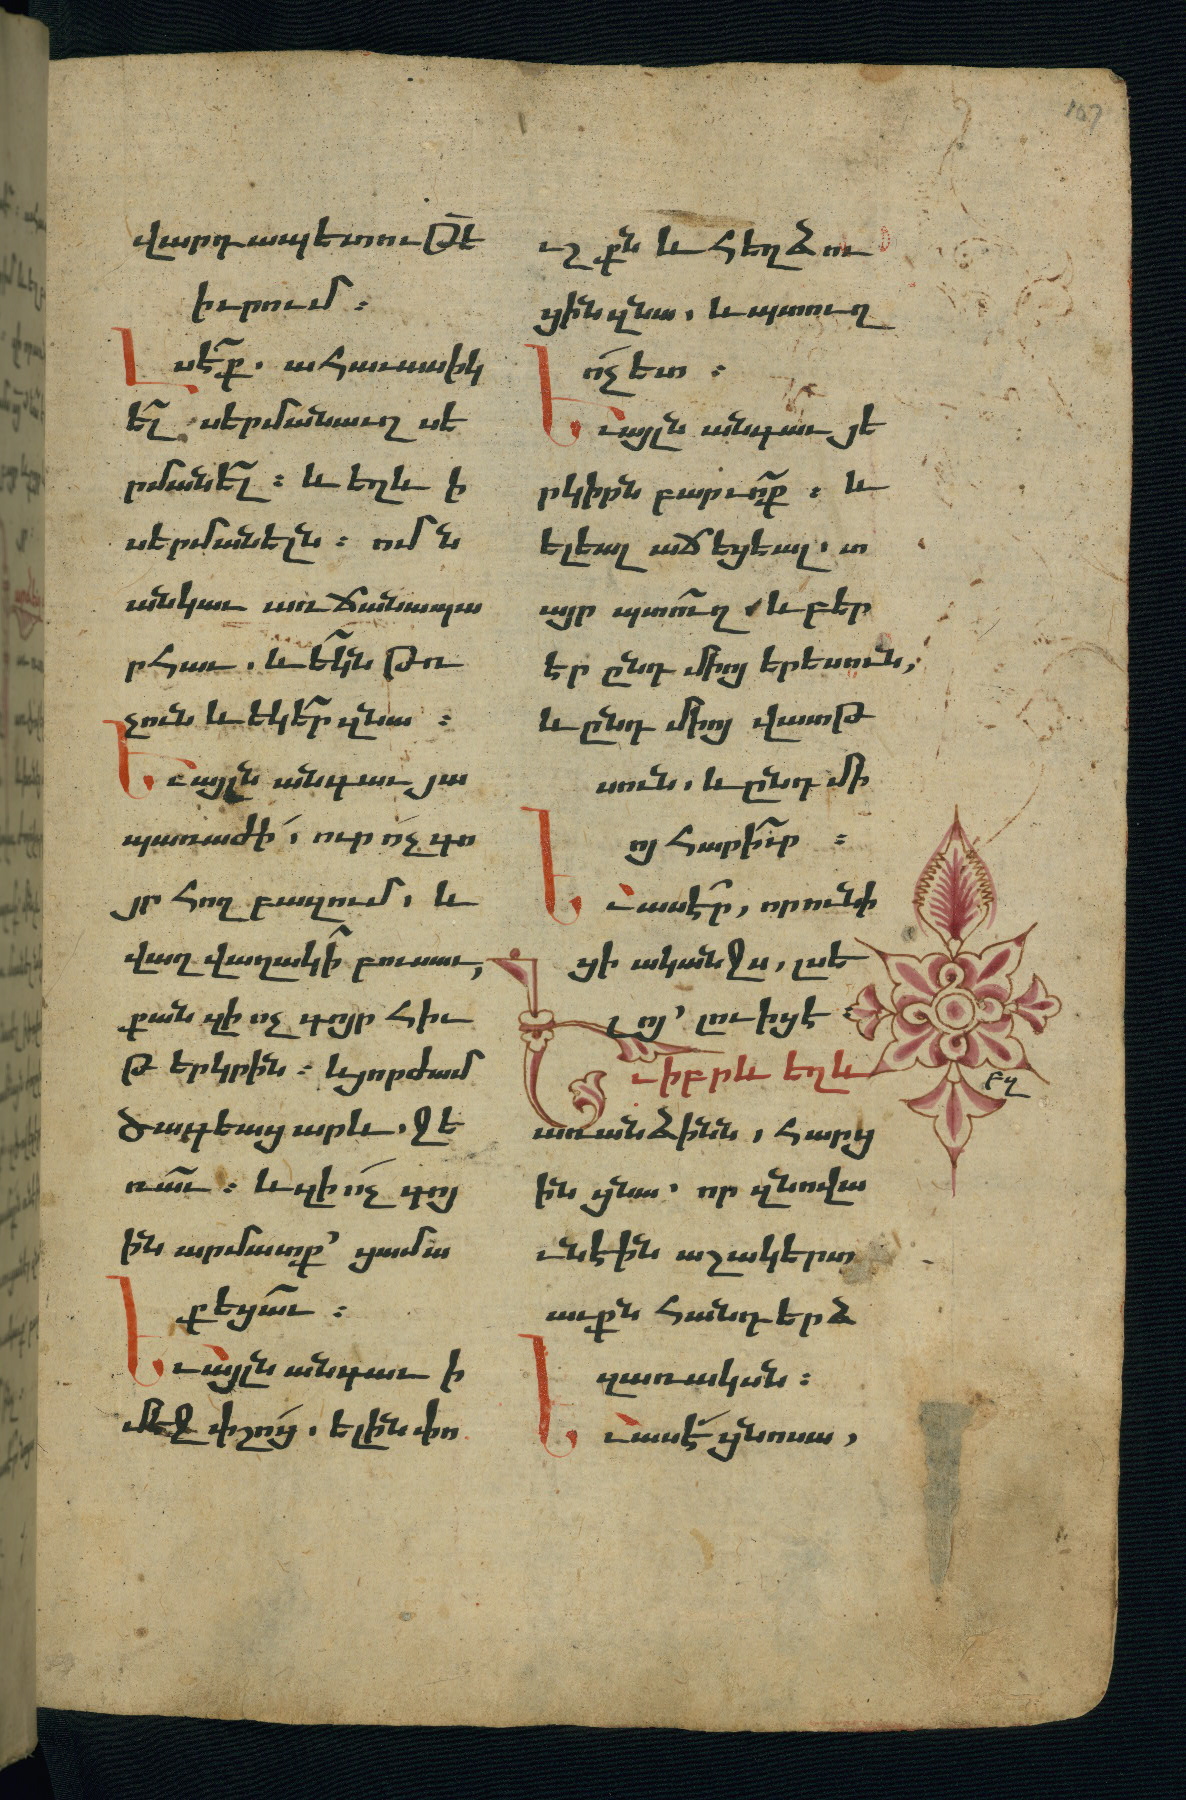 107
վարդապետութ՟ե
իւրում ։
Լ սէ՛ք. ահաւասիկ
ել սերմանաւղ սե
րմանել ։ և եղև ի
սերմանելն ։ ոմն
անկաւ առ ճանապա
րհաւ. և եկն թռ
չուն և եկեր զնա ։
Ե ւ այլն անգաւ յա
պառաժի՛, ուր ո՛չ գո
յր հող բազում, և
վաղ վաղակի բուսաւ,
քան զի ոչ գոյր հիւ
թ երկրին ։ և յորժամ
ծագեաց արև. ջե
ռաւ ։ և զի ո՛չ գոյ
ին արմատք՝ ցամա
քեցաւ ։
Ե ւ այլն անգաւ ի
մեջ փշոց. ելին փո
ւշքն և հեղձու
ցին զնա, և պտուղ
ո՛չ ետ ։
Ե ւ այլն անգաւ յե
րկիրն բարւոք ։ և
ելեալ աճեցեալ. տ
այր պտուղ. և բեր
եր ընդ միոյ երեսուն,
և ընդ միոյ վաթ
սուն. և ընդ մի
ոյ հարիւր ։
Ե ւ ասէր, որ ունի
ցի ականջս, լսե
լոյ՝ լուիցէ ։
Ե ւ իբրև եղև
առանձինն, հարց
ին ցնա՝ որ զնովա
ւնէին աշակերտ
աւքն հանդերձ
զառակսն ։
Ե ւ ասէ՛ ցնոսա,
բղ